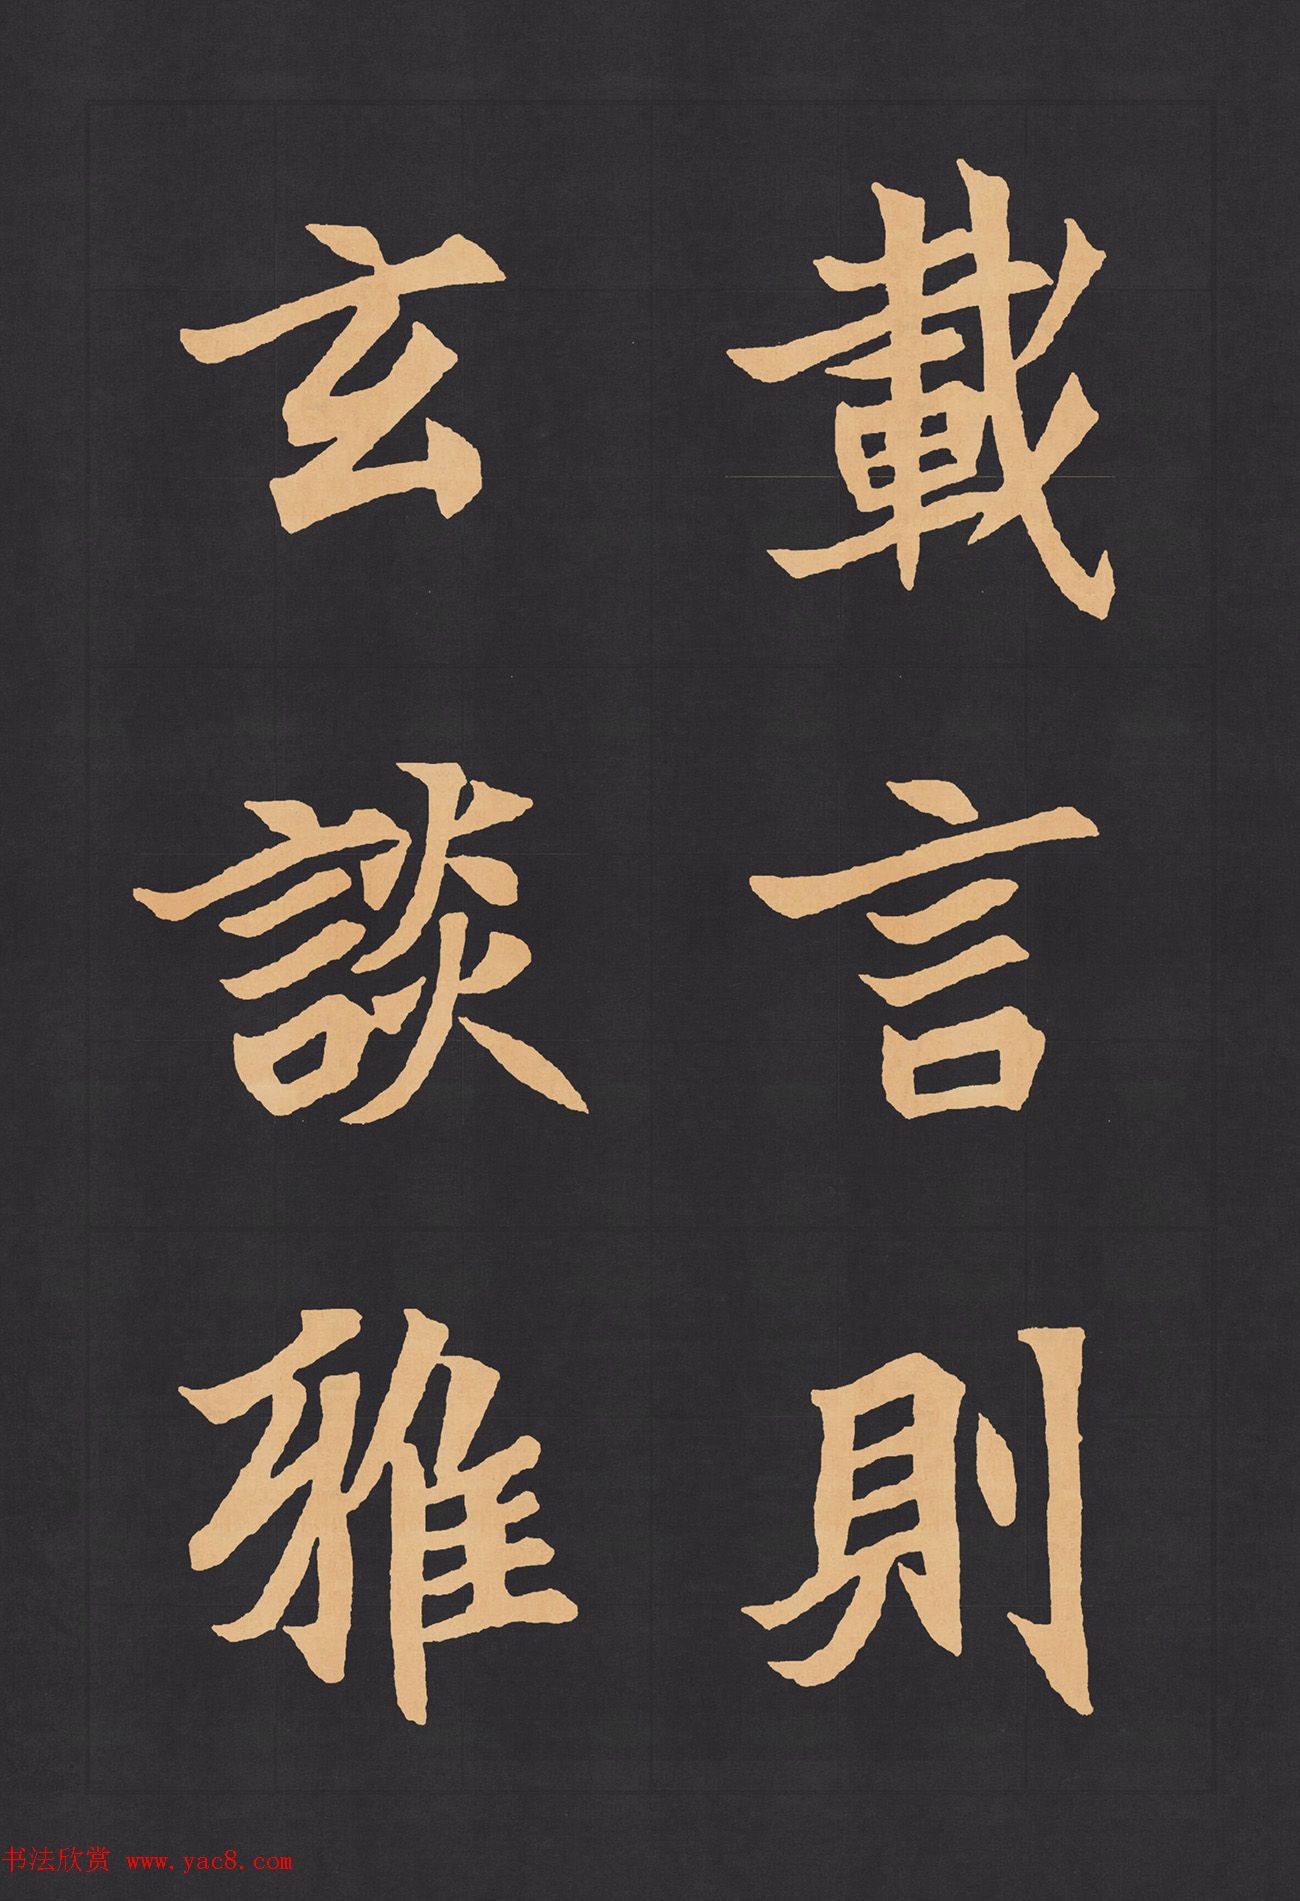 載言則
玄談雅
书法欣赏 www.yac8.com